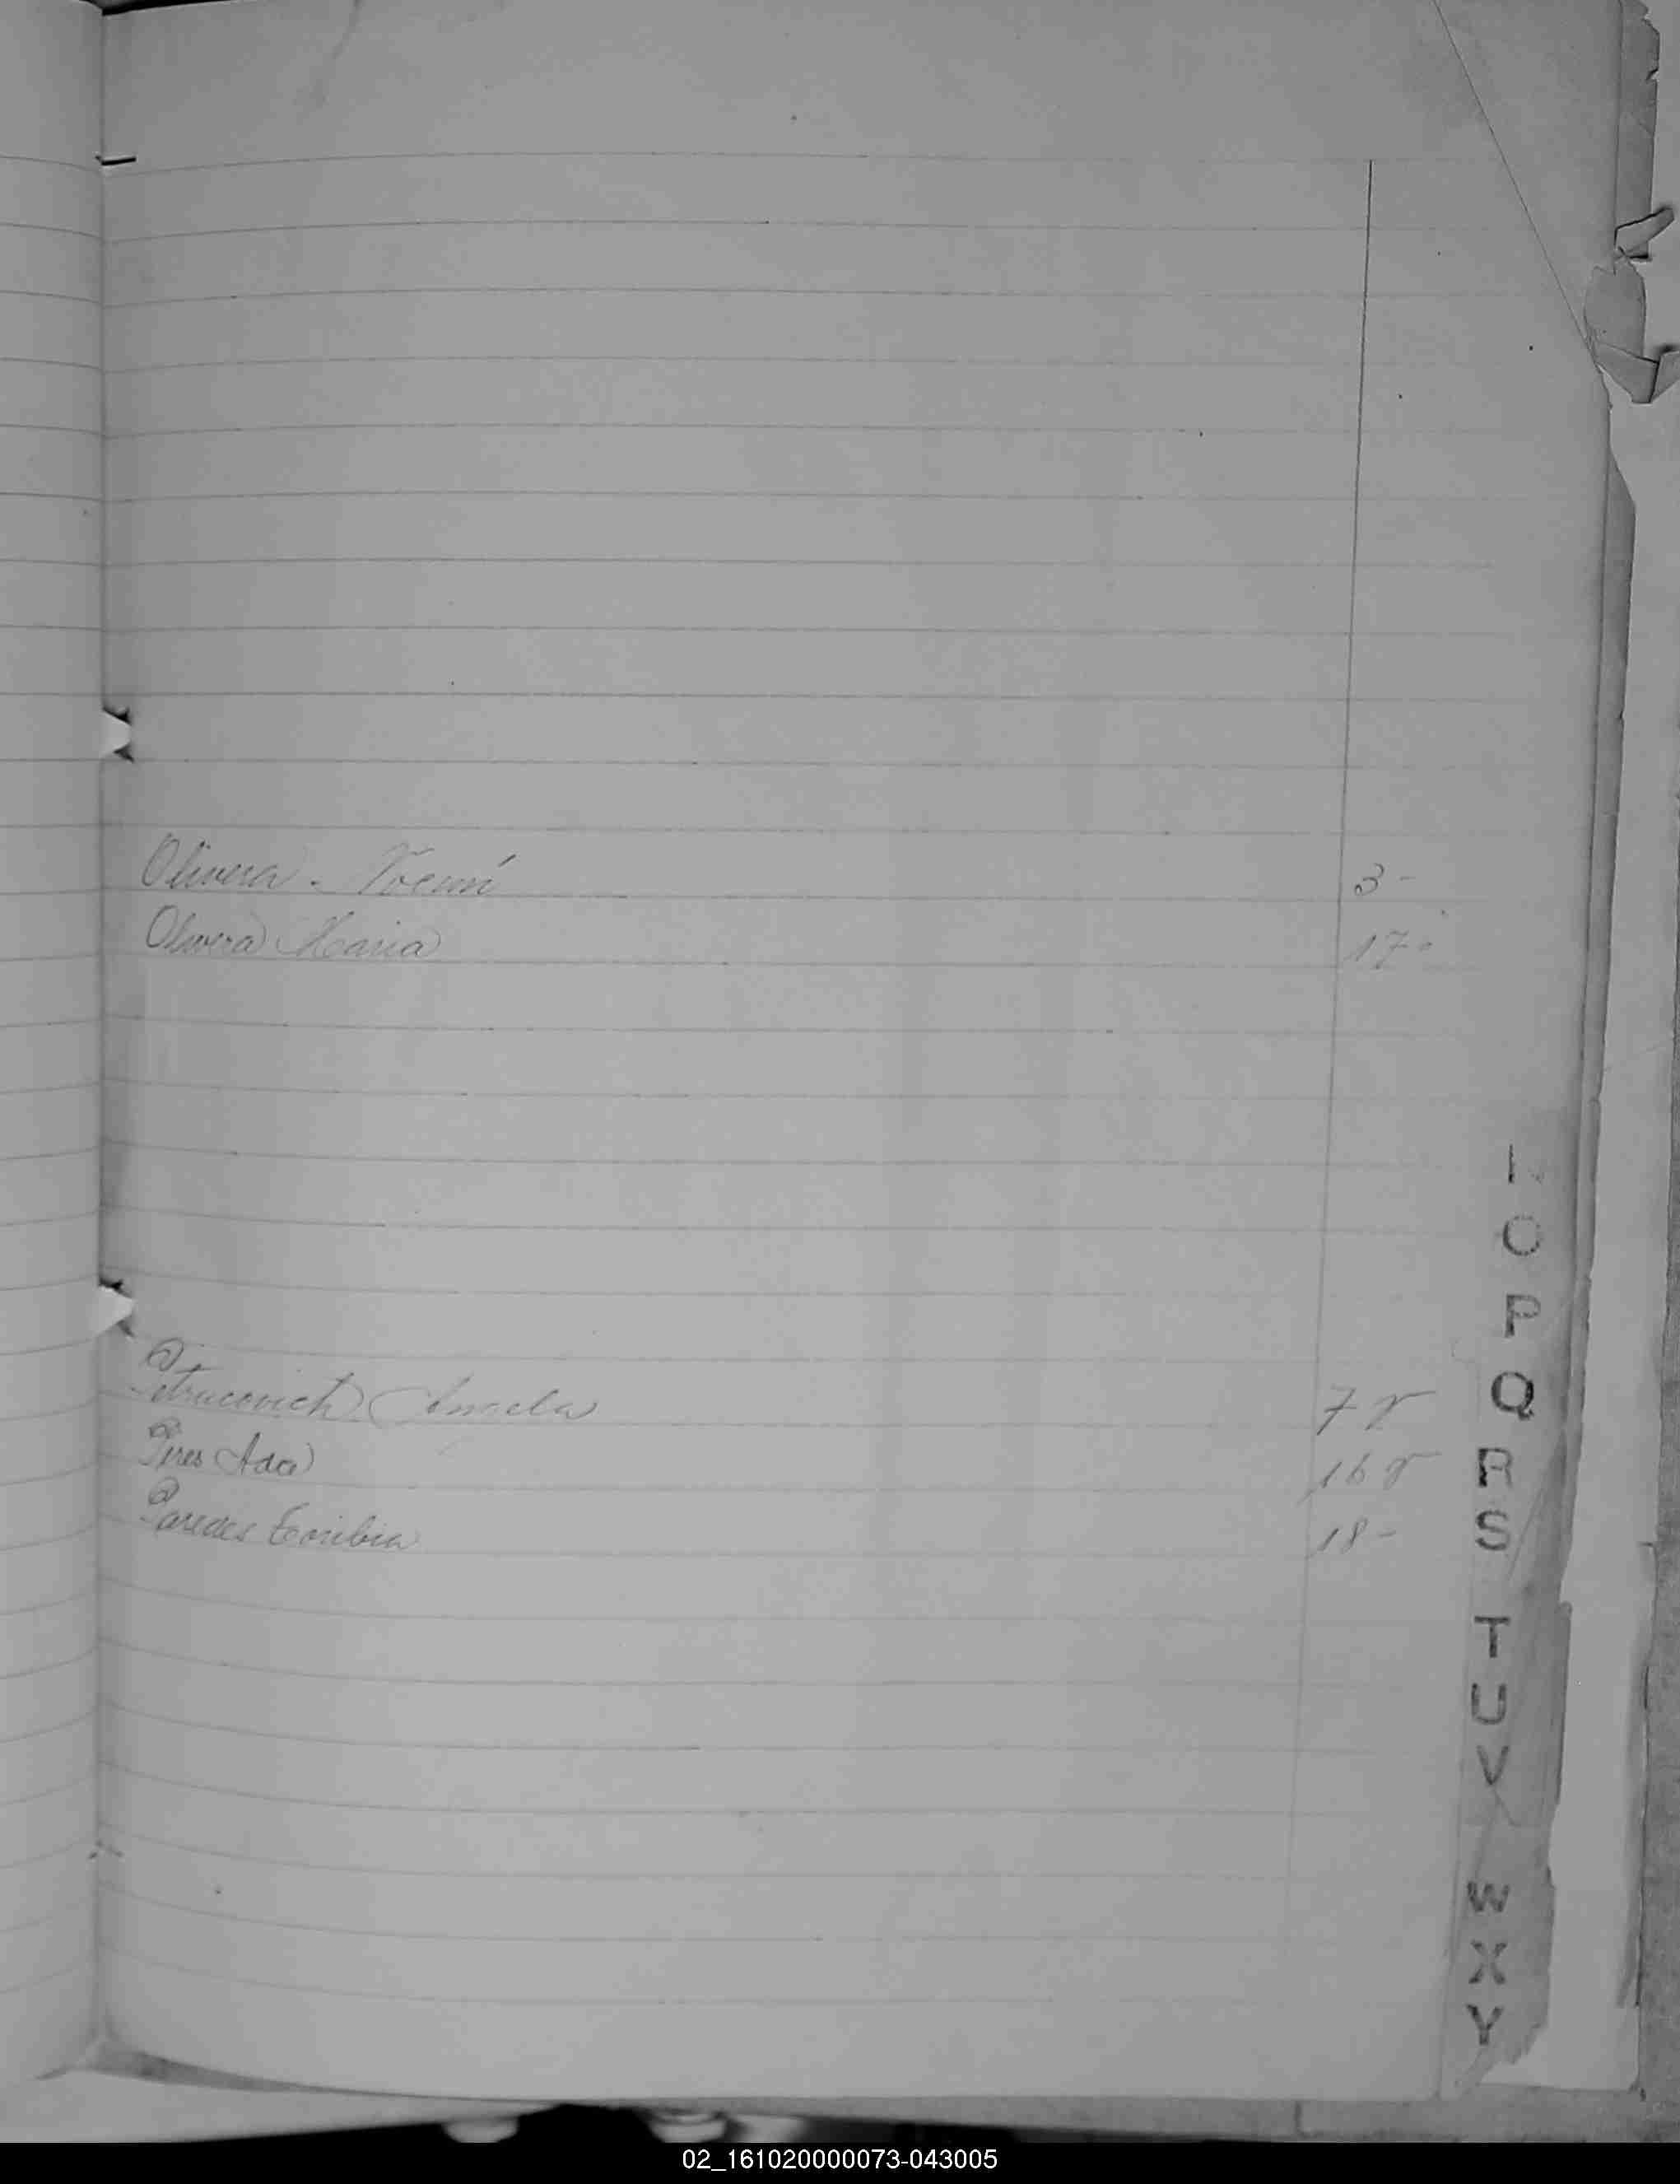 Olivera - Noemí 3 -
Olivera Maria 17 -
Petrucovich Amela 7 r
Pires Ada 16 r
Paredes Toribia 18 -
N
O
P
Q
R
S
T
U
V
W
X
Y
02_161020000073-043005